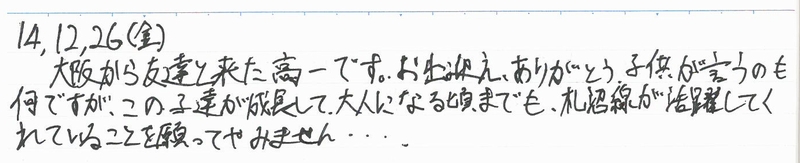 14,12,26(金)
大阪から友達と来た高一です。お出迎え、ありがとう。子供が言うのも
何ですが、この子達が成長して、大人になる頃までも、札沼線が活躍してく
れていることを願ってやみません・・・.